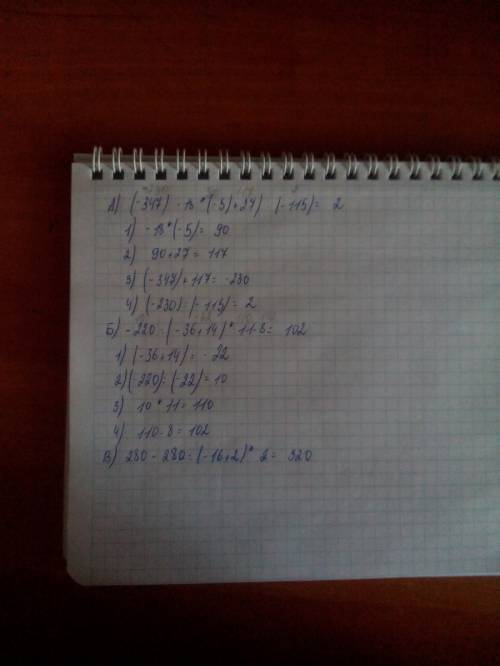 А) (-347) -18*(-5)+27) (-115)= 2
1) -18*(-5)= 90
2) 90+27= 117
3) (-347)+117= -230
4) (-230):(-115)= 2
Б) -220:(-36+14)* 11-8= 102
1) (-36+14)= -22
2) (-220):(-22)=10
3) 10*11=110
4) 110-8=102
В) 280-280:(-16+2)* 2= 320